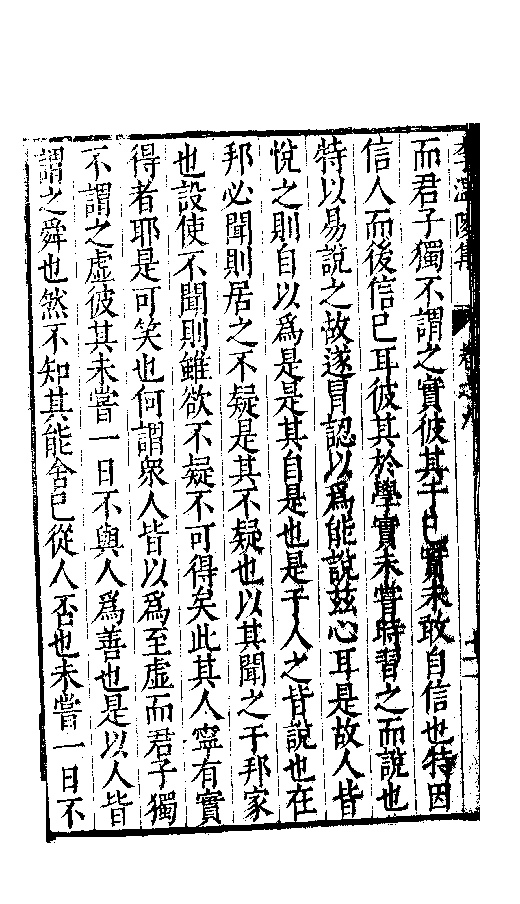 李溫陵集 卷之九
而君子獨不謂之實彼其于己實未敢自信也特因
信人而後信已耳彼其於學實未嘗時習之而說也
特以易說之故遂冒認以爲能說茲心耳是故人皆
悅之則自以爲是是其自是也是于人之皆說也在
邦必聞則居之不疑是其不疑也以其聞之于邦家
也設使不聞則雖欲不疑不可得矣此其人寧有實
得者耶是可笑也何謂衆人皆以爲至虛而君子獨
不謂之虛彼其未嘗一日不與人爲善也是以人皆
謂之舜也然不知其能舍已從人否也未嘗一日不